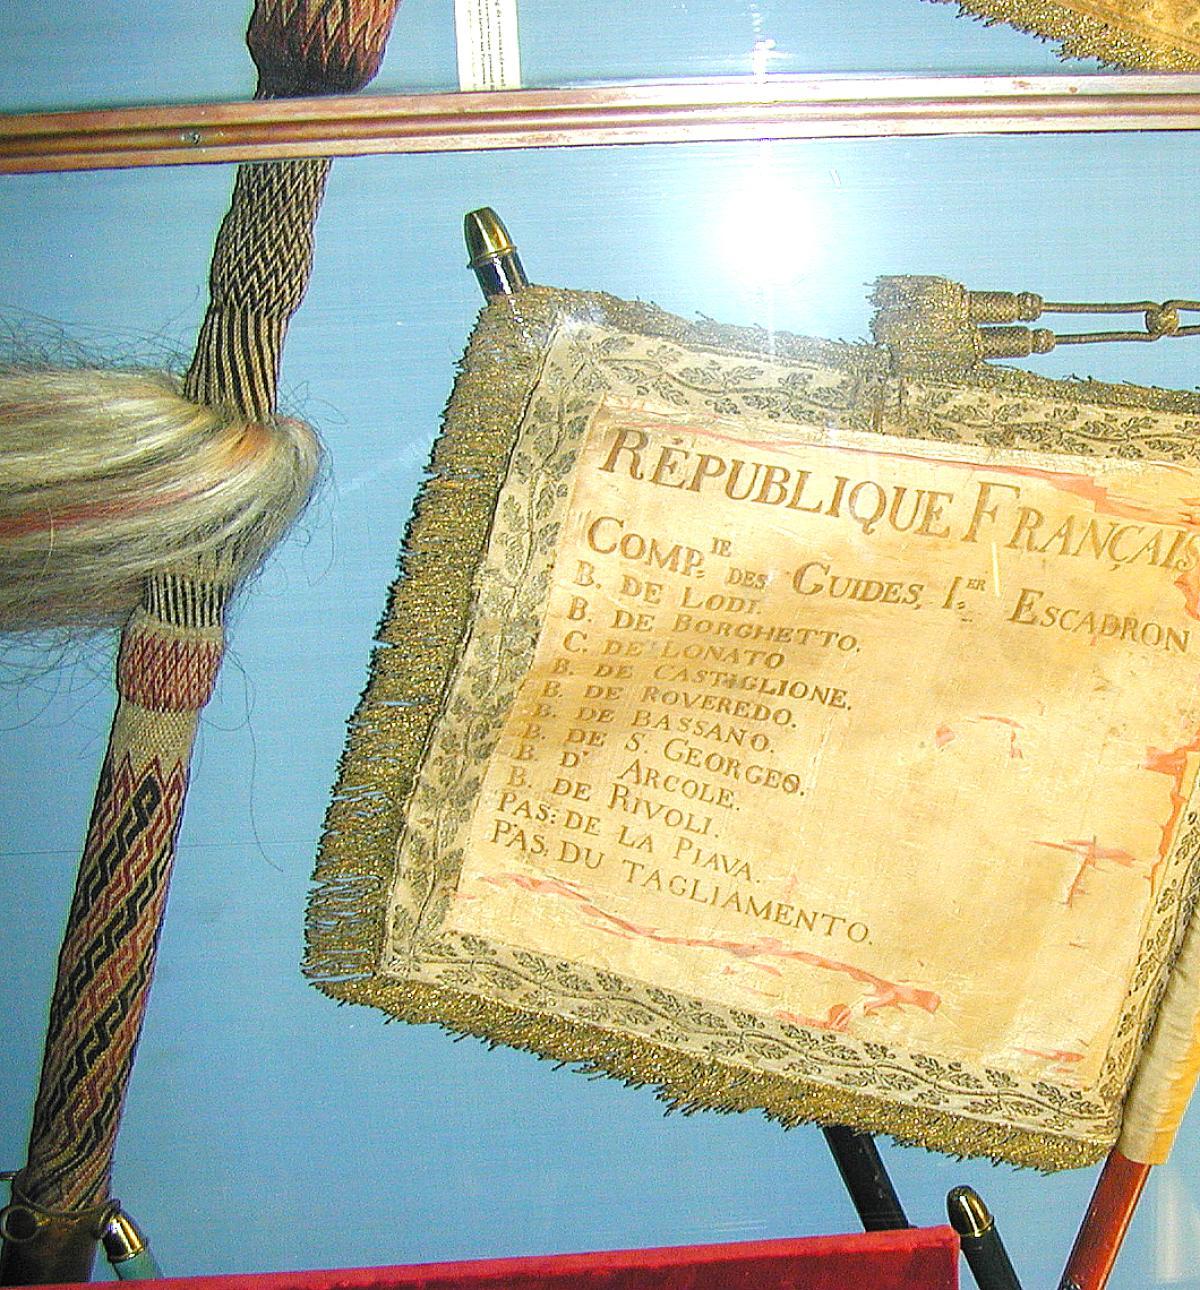 RÉPUBLIQUE FRANÇAIS
COMP.IE DES GUIDES, I.ER ESCADRON
B. DE LODI.
B. DE BORGHETTO.
C. DE LONATO
B. DE CASTIGLIONE.
B. DE ROVEREDO.
B. DE BASSANO.
B. DE S. GEORGES.
B. D' ARCOLE.
B. DE RIVOLI.
PAS: DE LA PIAVA.
PAS. DU TAGLIAMENTO.